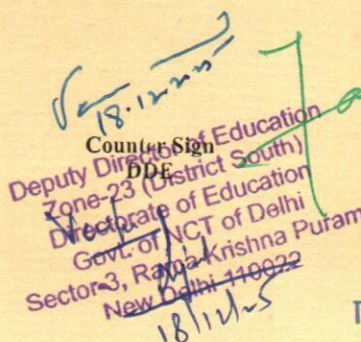 18.12.2025
Counter Sign
DDE
Deputy Director of Education
Zone-23 (District South)
Directorate of Education
Govt. of NCT of Delhi
Sector-3, Rama Krishna Puram
New Delhi-110022
18/12/25